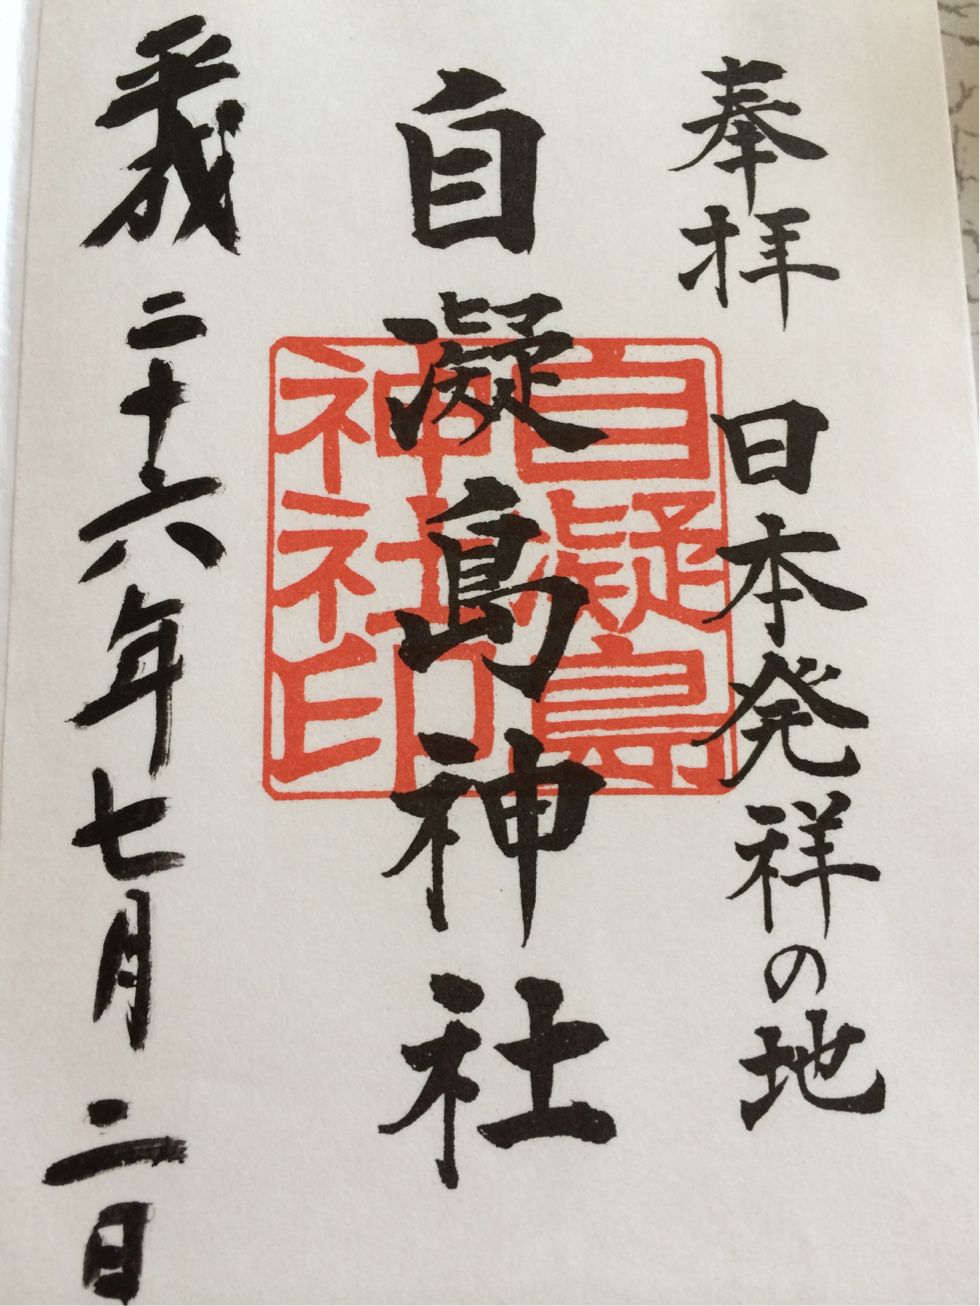 奉拝 日本発祥の地
自凝島神社
自凝島
神社印
平成二十六年七月二日